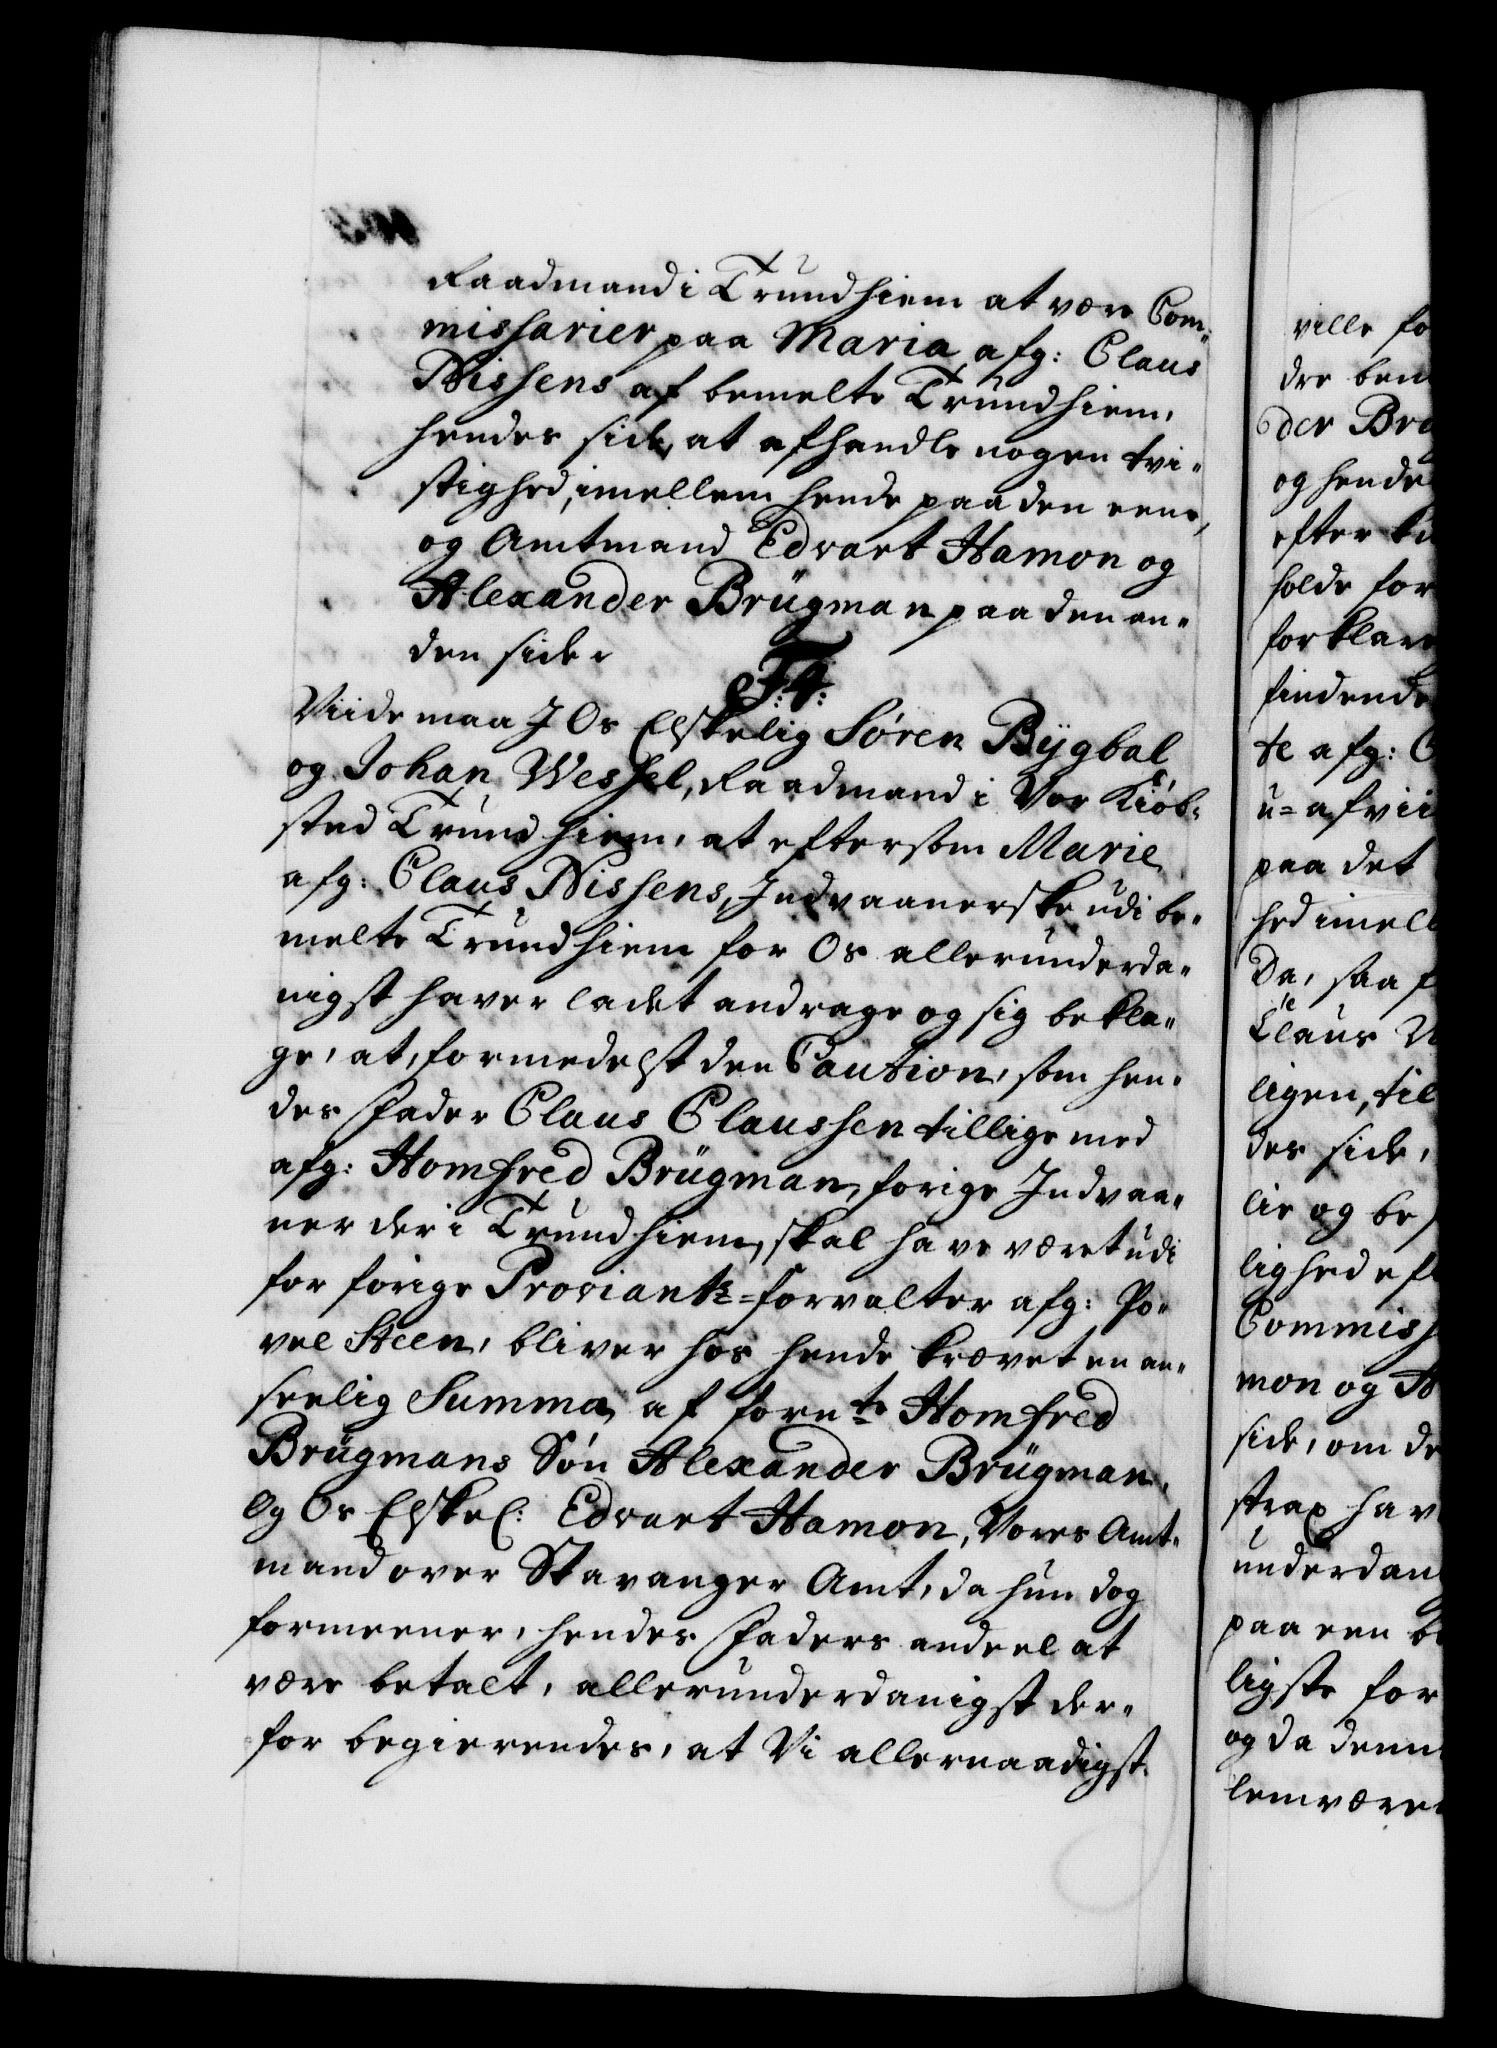 Raadmand i Trundhiem at være Com¬
missarier paa Maria afg: Claus
Nissens af bemelte Trundhiem,
hendes side, at afhandle nogen tvi¬
stighed, imellem hende paa den eene,
og Amtmand Edvart Hamon og
Alexander Brügman paa den an¬
den side
F: 4:
Viide maa I Os Elskelig Søren Bygbal
og Johan Wessel, Raadmand i Vor Kiøb¬
sted Trundhiem, at eftersom Marie
afg: Claus Nissens, Indvaanerske udi be¬
melte Trundhiem for Os allerunderda¬
nigst haver ladet andrage og sig bekla¬
ge, at, formedelst den Caution, som hen¬
des Fader Claus Claussen tillige med
afg: Homfred Brügman, forige Indvaa¬
ner der i Trundhiem, skal have været udi
for forige Proviants-forvalter afg: Po¬
vel Steen, bliver hos hende krævet en an¬
seelig Summa af fornte Homfred
Brügmans Søn Alexander Brügman,
Og Os Elskel: Edvart Hamon, Vores Amt¬
mand over Stavanger Amt, da hun dog
formeener, hendes Faders andeel at
være betalt, allerunderdanigst der¬
for begierendes, at Vi allernaadigst
ville fo
dre bem
der Brü
og hende
efter
holde for
forklare
findende
te afg: C
u=afvii
paa det
hed imell
Da, saa f
Claus N
ligen, til
des side,
lie og be
lighed ef
Commiss
mon og A
side, om de
strax hav
underdan
paa een b
ligste for
og da denn
lem være